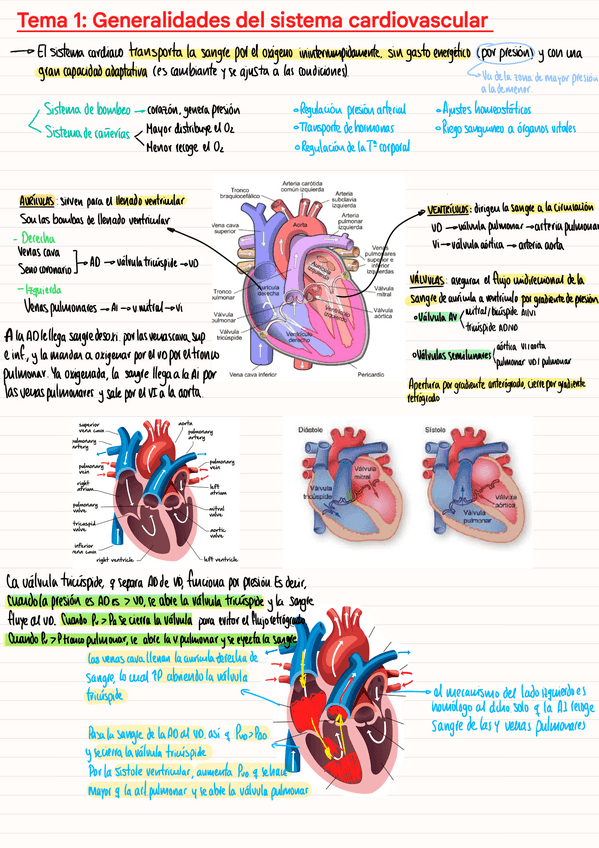 Tema 1: Generalidades del sistema cardiovascular
→ El sistema cardiaco transporta la sangre por el oxígeno ininterrumpidamente, sin gasto energético (por presión) y con una
gran capacidad adaptativa (es cambiante y se ajusta a las condiciones).
Va de la zona de mayor presión
a la de menor.
Sistema de bombeo → corazón, genera presión
Sistema de cañerías Mayor distribuye el O₂
Menor recoge el O₂
•Regulación presión arterial
•Transporte de hormonas
•Regulación de la Tª corporal
•Ajustes homeostáticos
•Riego sanguíneo a órganos vitales
AURÍCULAS: sirven para el llenado ventricular
Son las bombas de llenado ventricular
- Derecha
Venas cava
Seno coronario
→ AD → válvula tricúspide → VD
- Izquierda
Venas pulmonares → Ai → v mitral → Vi
A la AD le llega sangre desoxi. por las venas cava, sup
e inf, y la mandan a oxigenar por el VD por el tronco
pulmonar. Ya oxigenada, la sangre llega a la Ai por
las venas pulmonares y sale por el VI a la aorta.
Tronco
braquiocefálico
Arteria carótida
común izquierda
Arteria
subclavia
izquierda
Vena cava
superior
Aorta
Arteria
pulmonar
izquierda
Venas
pulmonares
superior e
inferior
izquierdas
Aurícula
izquierda
Aurícula
derecha
Tronco
pulmonar
Válvula
mitral
Válvula
pulmonar
Válvula
aórtica
Válvula
tricúspide
Ventrículo
izquierdo
Ventrículo
derecho
Vena cava inferior
Pericardio
VENTRÍCULOS: dirigen la sangre a la circulación
VD → válvula pulmonar → arteria pulmonar
Vi → válvula aórtica → arteria aorta
VÁLVULAS: aseguran el flujo unidireccional de la
sangre de aurícula a ventrículo por gradiente de presión
•Válvula AV mitral/bicúspide AI/VI
tricúspide AD/VD
•Válvulas semilunares aórtica VI/aorta
pulmonar VD/pulmonar
Apertura por gradiente anterógrado, cierre por gradiente
retrógrado
superior
vena cava
aorta
pulmonary
artery
pulmonary
artery
pulmonary
vein
pulmonary
vein
right
atrium
left
atrium
pulmonary
valve
mitral
valve
tricuspid
valve
aortic
valve
inferior
vena cava
right ventricle
left ventricle
Diástole
Válvula
mitral
Válvula
tricúspide
Sístole
Válvula
aórtica
Válvula
pulmonar
La válvula tricúspide, q separa AD de VD, funciona por presión. Es decir,
cuando la presión es AD es > VD, se abre la válvula tricúspide y la sangre
fluye al VD. Cuando Pv > Pa se cierra la válvula para evitar el flujo retrógrado.
Cuando Pv > P tronco pulmonar, se abre la v. pulmonar y se eyecta la sangre
Las venas cava llenan la aurícula derecha de
sangre, lo cual ↑P abriendo la válvula
tricúspide
Pasa la sangre de la AD al VD. así q PVD > PAD
y se cierra la válvula tricúspide
Por la sístole ventricular, aumenta PVD q se hace
mayor q la art pulmonar y se abre la válvula pulmonar
el mecanismo del lado izquierdo es
homólogo al dcho solo q la AI recoge
sangre de las 4 venas pulmonares